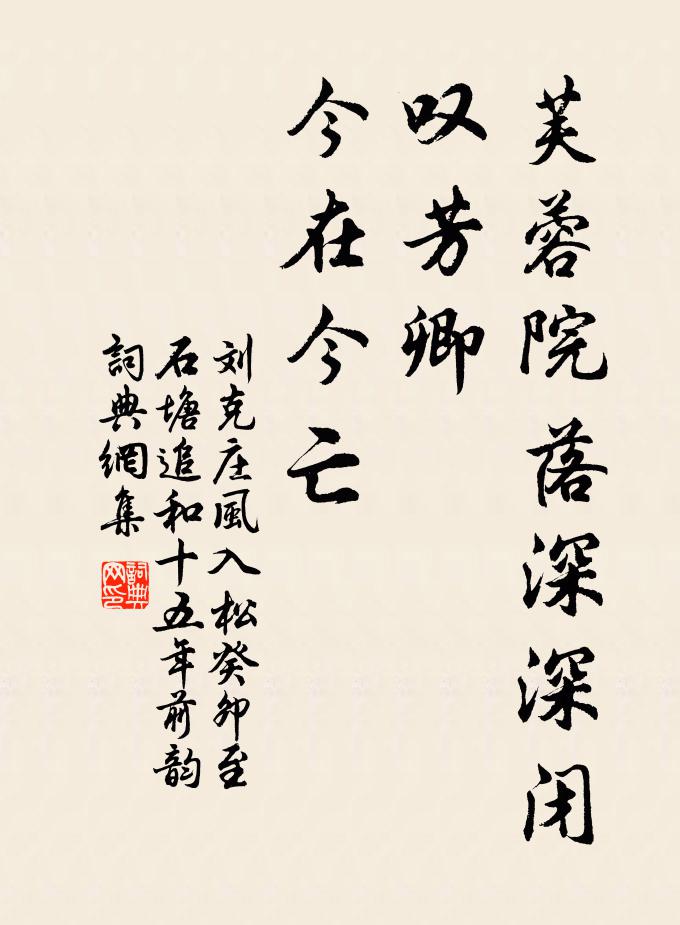 芙蓉院落深深闭
叹芳卿
今在今亡
刘克庄風入松癸卯至
石塘追和十五年前韵
詞典網集
詞典
网印